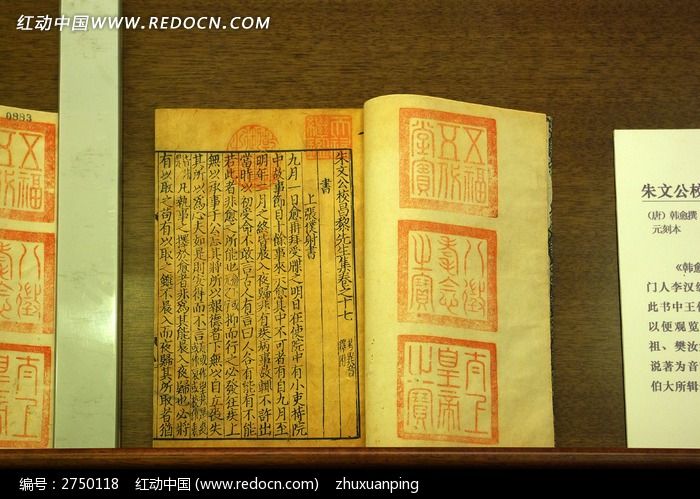 红动中国 www.redocn.com
0983
五福
五代
堂寶
八徵
耄念
之寶
太上
皇帝
之寶
朱文公校昌黎先生集卷之十七
書
上張僕射書
九月一日愈再拜受牒之明日在使院中有小吏持院
中故事節目十餘事來示愈其中不可者有自九月至
明年二月之終皆晨入夜歸非有疾病事故輒不許出
當時以初受命不敢言古人有言曰人各有能有不能
若此者非愈之所能也抑而行之必發狂疾上
無以承事于公忘其將所以報德者下無以自立喪失
其所以為心夫如是則安得而不言
凡執事之擇於愈者非為其能晨入夜歸也必將
有以取之苟有以取之雖不晨入而夜歸其所取者猶
朱文公校
(唐) 韩愈撰
元刻本
《韩愈
门人李汉编
此书中王伯
以便观览
祖、樊汝
说著为音
伯大所辑
编号：2750118 红动中国 (www.redocn.com) zhuxuanping